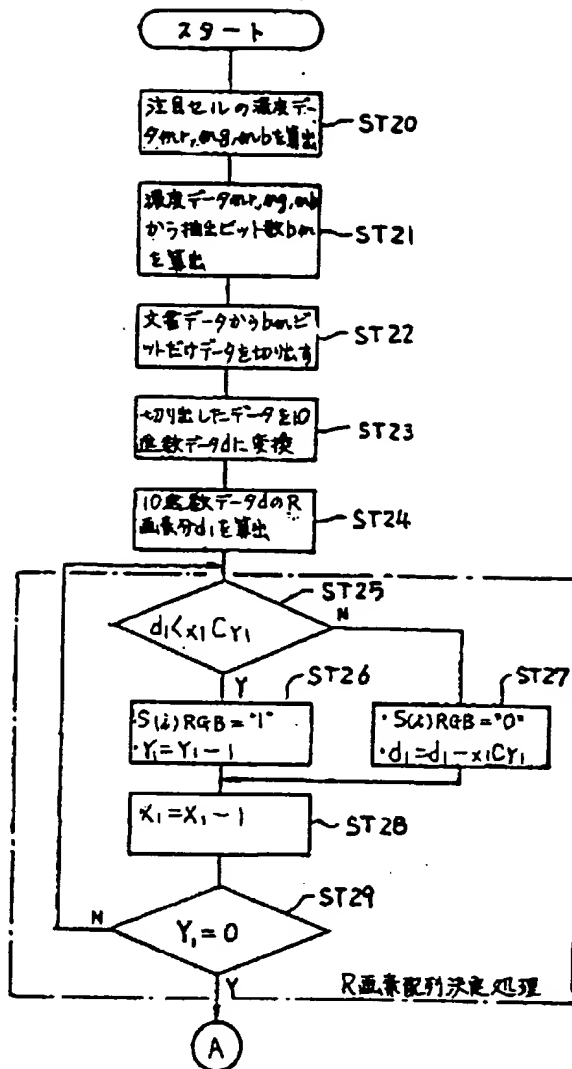 スタート
注目セルの濃度デー
タmr,mg,mbを算出
ST20
濃度データmr,mg,mb
から抽出ビット数bm
を算出
ST21
文書データからbmビ
ットだけデータを切り出す
ST22
切り出したデータを10
進数データdに変換
ST23
10進数データdのR
画素分d₁を算出
ST24
ST25
d₁<x₁Cʏ₁
N
Y
ST26
・S(i)RGB="1"
・Y₁=Y₁-1
ST27
・S(i)RGB="0"
・d₁=d₁-x₁Cʏ₁
x₁=x₁-1
ST28
ST29
N
Y₁=0
Y
R画素配列決定処理
A